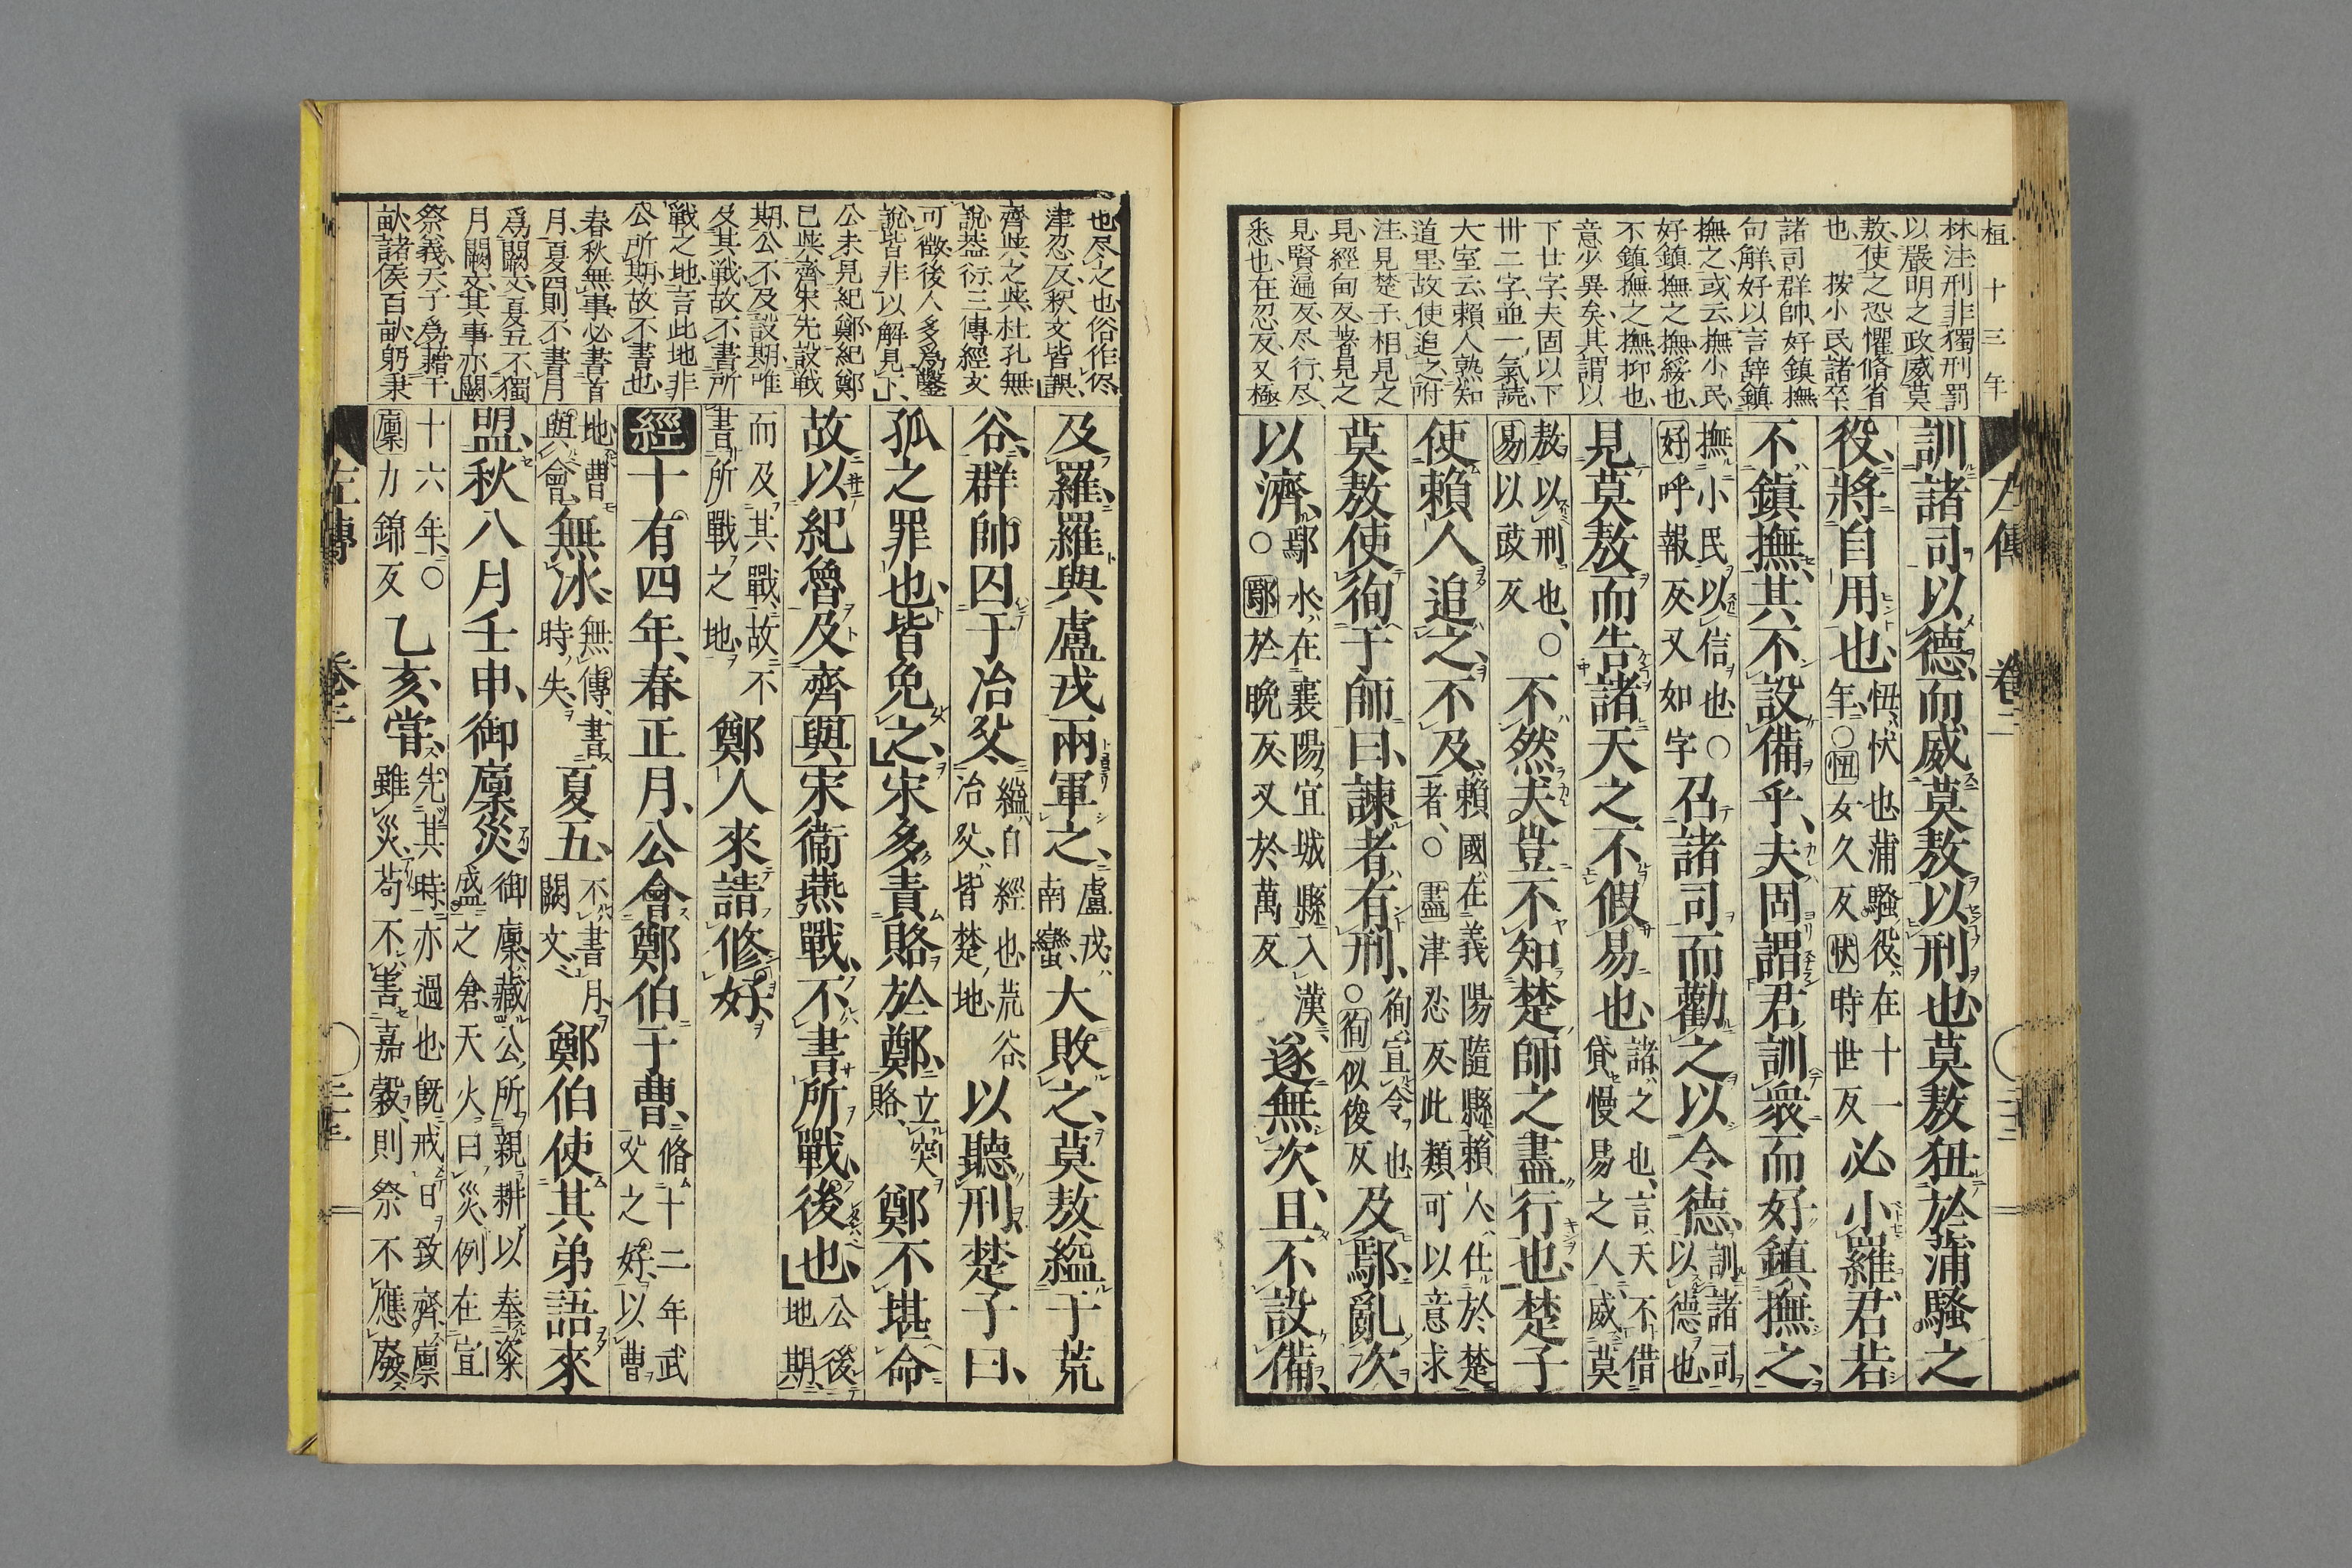 桓 十三年
林注刑非獨刑罰
以嚴明之政威莫
敖使之恐懼脩省
也 按小民諸卒
諸司群帥好鎮撫
句解好以言辭鎮
撫之或云撫小民
好鎮撫之撫綏也
不鎮撫之撫抑也
意少異矣其謂以
下廿字夫固以下
卅二字並一氣読
大室云賴人熟知
道里故使追之附
注見楚子相見之
見經甸反著見之
見賢遍反尽行尽
悉也在忍反又極
訓諸司以德而威莫敖以刑也莫敖狃於蒲騷之
役將自用也狃忕也蒲騷役在十一
年○狃女久反忕時世反必小羅君若
不鎮撫其不設備乎夫固謂君訓衆而好鎮撫之
撫小民以信也○
好呼報反又如字召諸司而勸之以令德訓諸司
以德也
見莫敖而告諸天之不假易也諸之也言天不借
貸慢易之人威莫
敖以刑也○
易以豉反不然夫豈不知楚師之盡行也楚子
使賴人追之不及賴國在義陽隨縣賴人仕於楚
者○盡津忍反此類可以意求
莫敖使徇于師曰諫者有刑徇宣令也
○徇似俊反及鄢亂次
以濟鄢水在襄陽宜城縣入漢
○鄢於晩反又於萬反遂無次且不設備
左傳 卷二
也尽之也俗作侭
津忍反釈文皆誤
齊燕之燕杜孔無
說盖衍三傳經文
可徴後人多爲鑿
說皆非以解見下
公未見紀鄭紀鄭
已與齊宋先設戦
期公不及設期唯
及其戦故不書所
戦之地言此地非
公所期故不書也
春秋無事必書首
月夏四則不書月
爲闕文夏五不獨
月闕文其事亦闕
祭義天子爲藉千
畝諸侯百畝躬秉
及羅羅與盧戎兩軍之盧戎
南蠻大敗之莫敖縊于荒
谷群帥囚于冶父縊自經也荒谷
冶父皆楚地以聽刑楚子曰
孤之罪也皆免之宋多責賂於鄭立突
賂鄭不堪命
故以紀魯及齊與宋衞燕戰不書所戰後也公後
地期
而及其戰故不
書所戰之地鄭人來請修好
經十有四年春正月公會鄭伯于曹脩十二年武
父之好以曹
地曹
與會無冰無傳書
時失夏五不書月
闕文鄭伯使其弟語來
盟秋八月壬申御廩災御廩藏公所親耕以奉粢
盛之倉天火曰災例在宣
十六年○
廩力錦反乙亥嘗先其時亦過也旣戒日致齊廩
雖災苟不害嘉穀則祭不應廢
左傳 卷二